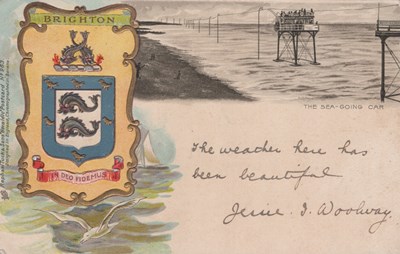 BRIGHTON
IN DEO FIDEMUS
THE SEA-GOING CAR
The weather here has
been beautiful
Jessie I. Woolway.